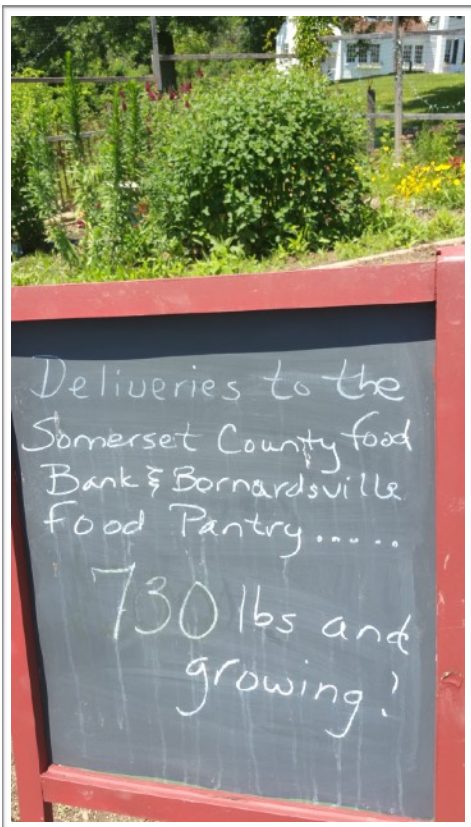 Deliveries to the
Somerset County food
Bank & Bernardsville
Food Pantry.....
730 lbs and
growing!